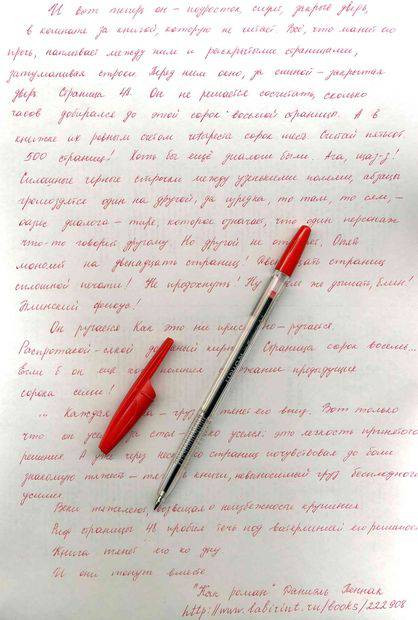 И вот теперь он – подросток, сидит, закрыв дверь,
в комнате за книгой, которую не читает. Всё, что манит его
прочь, наплывает между ним и раскрытыми страницами,
затуманивая строки. Перед ним окно, за спиной – закрытая
дверь. Страница 48. Он не решается сосчитать, сколько
часов добирался до этой сорок восьмой страницы. А в
книжке их ровным счётом четыреста сорок шесть. Считай пятьсот
500 страниц! Хоть бы ещё диалоги были. Ага, щаз-з!
Сплошные чёрные строчки между узенькими полями, абзацы
громоздятся один на другой, да изредка, то там, то сям, –
оазис диалога – тире, которое означает, что один персонаж
что-то говорит другому. Но другой не Опять
монолог на двенадцать страниц! страниц
сплошной печати! Не продохнуть! Ну же дышать, блин!
Блинский фокус!
Он ругается. Как это ни ругается.
Страница сорок восемь...
Если б он ещё предыдущих
сорока семи!
... Каждая тянет его вниз. Вот только
что он за стол – уселся: это лёгкость принятого
решения. А уже через страниц почувствовал до боли
знакомую тяжесть – книги, невыносимый груз бесплодного
усилия.
Веки тяжелеют, неизбежность крушения.
Риф страницы 48 пробил течь под ватерлинией его решимости
Книга тянет его ко дну.
И они тонут вместе.
"Как роман" Даниэль Пеннак
http://www.labirint.ru/books/222908